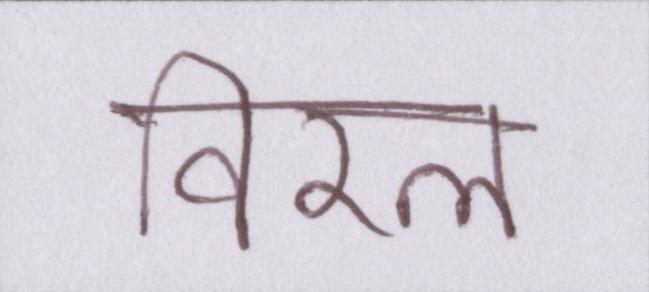 विरल